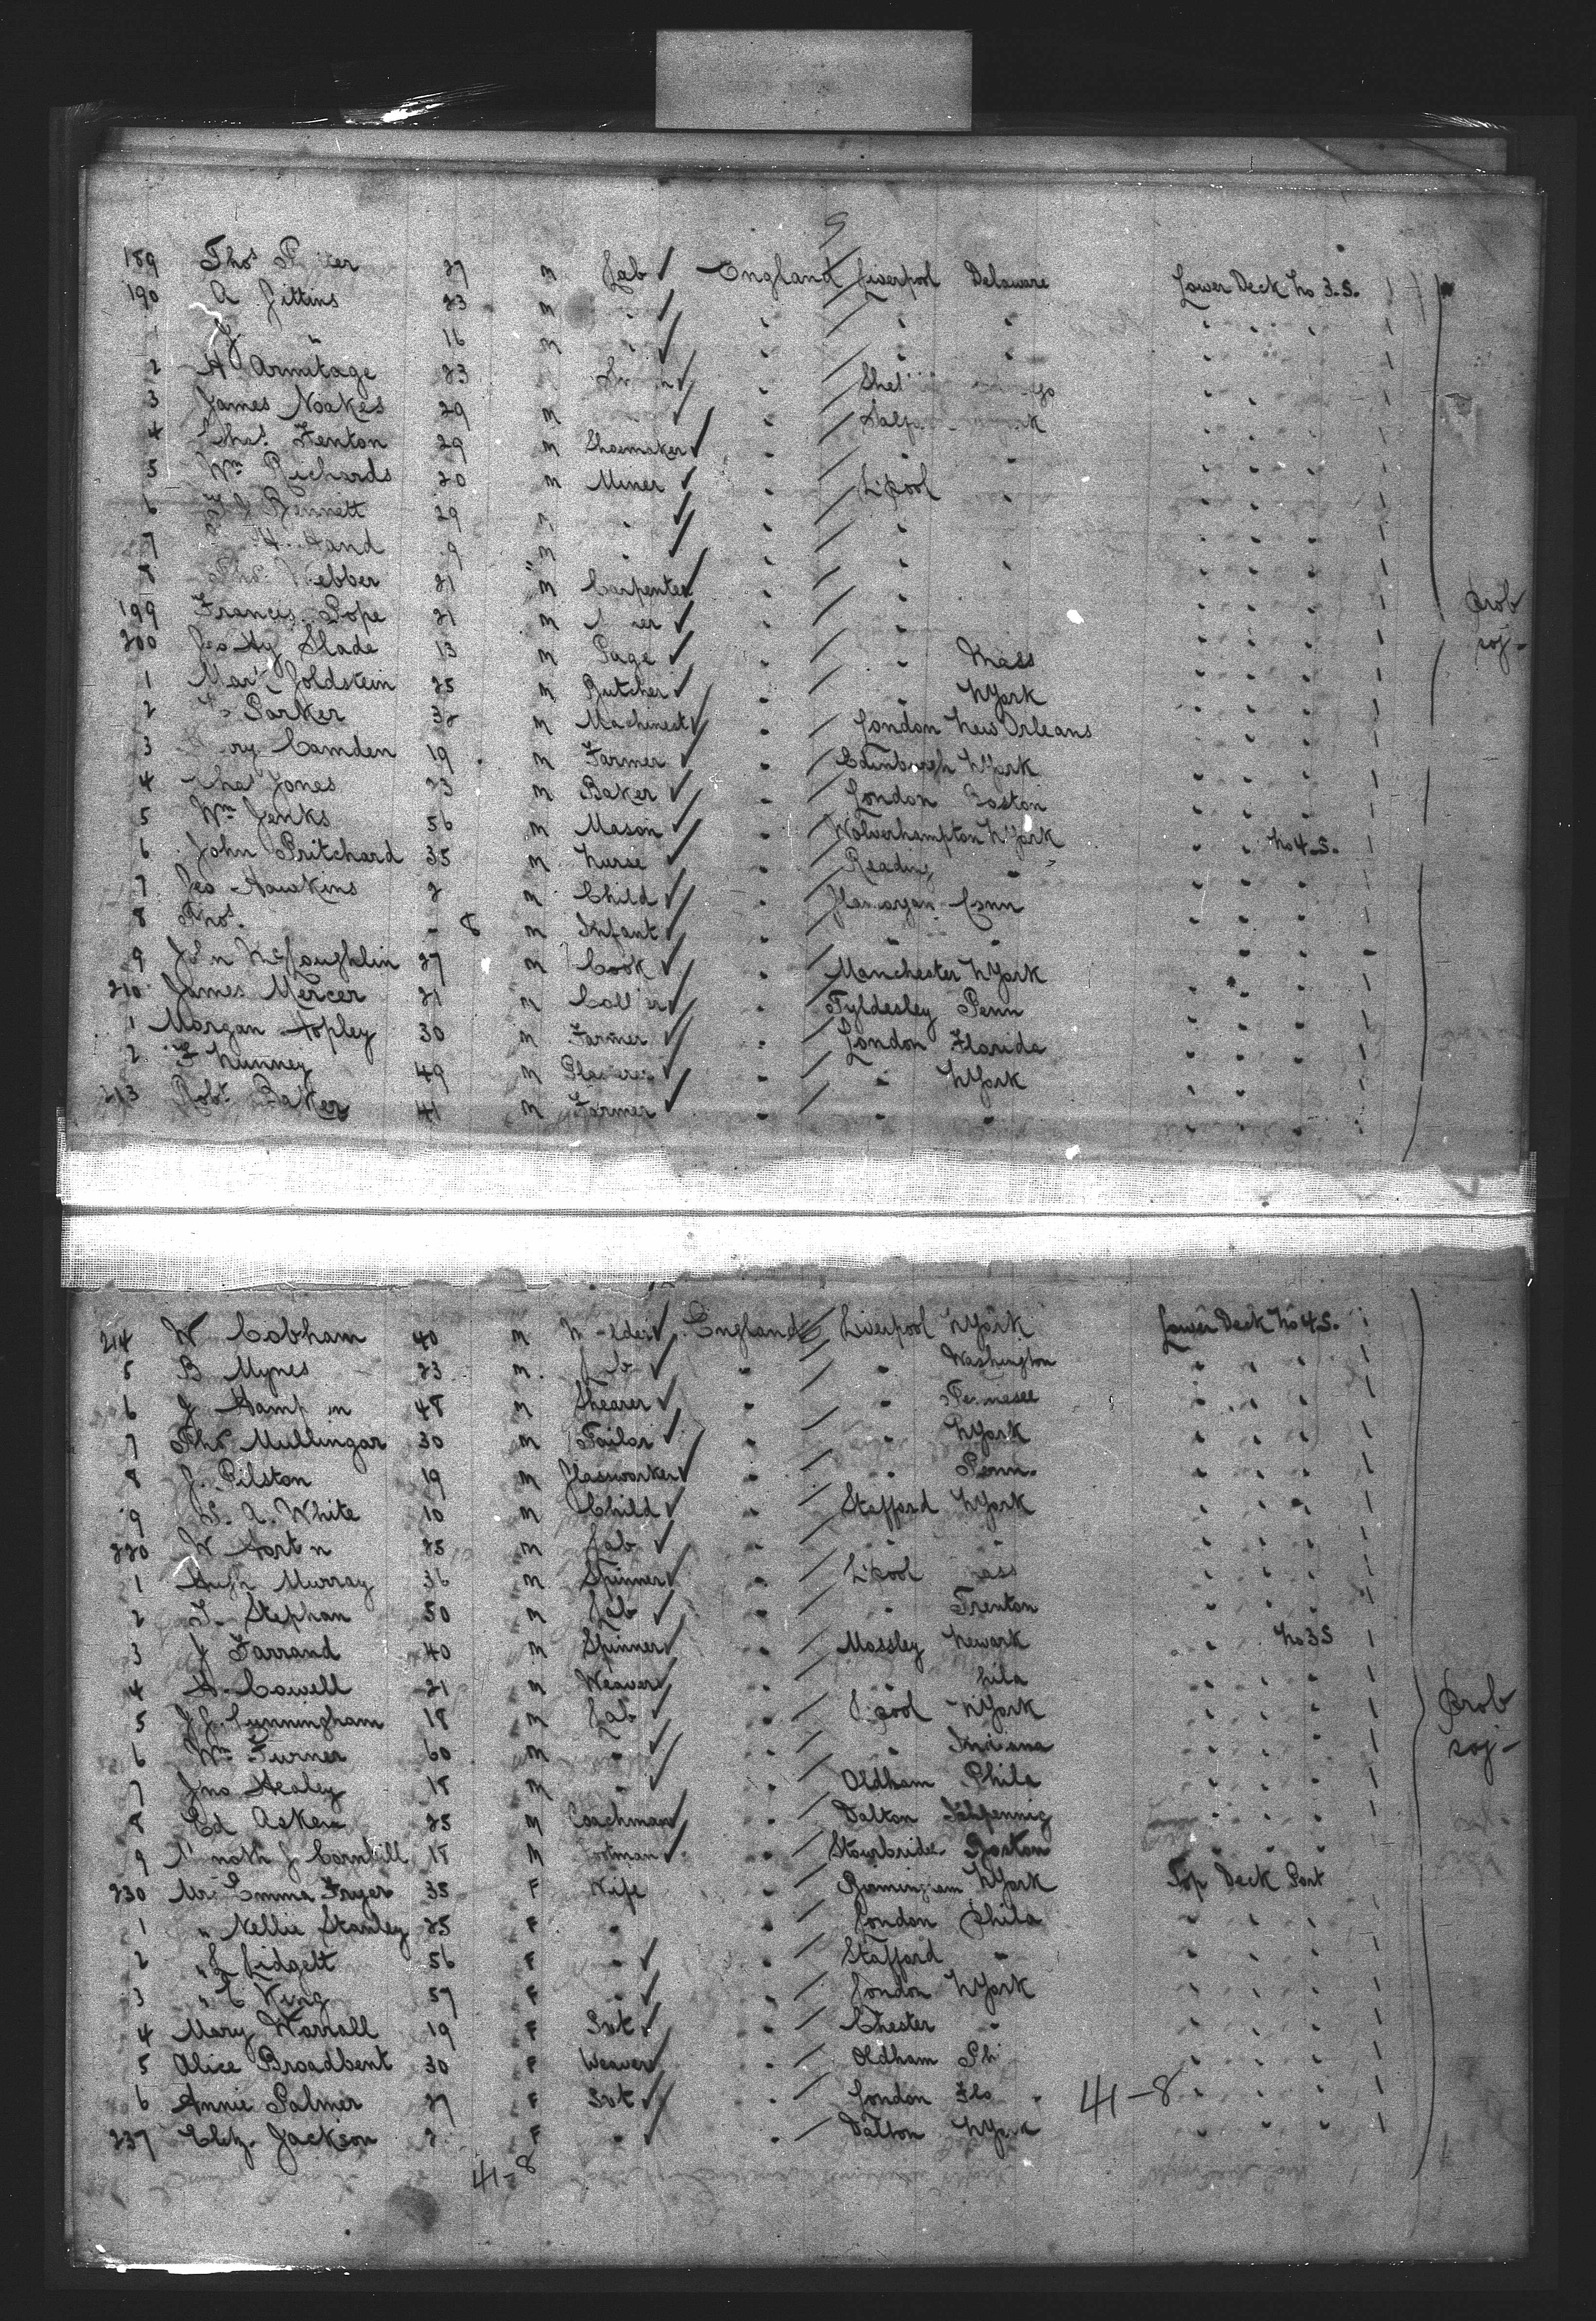 9
189 Thos 27 m Lab ✓ England / Liverpool Delaware Lower Deck No 3.S. 1
190 A Jittins 23 m " ✓ " / " " " " " " 1
1 J " 16 m " ✓ " / " " " " " " 1
2 A Armitage 23 ✓ " / " " " " 1
3 James Noakes 29 m ✓ " / " " " " 1
4 Chas. Fenton 29 m Shoemaker ✓ " / " " " " " " 1
5 Wm Richards 20 m Miner ✓ " / L'pool " " " " " 1
6 Bennett 29 m " ✓ " / " " " " " 1
7 H. Hand 9 m " ✓ " / " " " " " " 1
8 Thos. Webber 21 m Carpenter ✓ " / " " " " " 1
199 Francis Pope 21 m ✓ " / " " " " " 1
200 Slade 13 m Page ✓ " / " Mass " " " " 1
1 Mark Goldstein 25 m Butcher ✓ " / " N York " " " " 1
2 Parker 32 m Machinest ✓ " / London New Orleans " " " " 1
3 Camden 19 m Farmer ✓ " / Edinburgh N York " " " " 1
4 Chas Jones 23 m Baker ✓ " / London Boston " " " " 1
5 Wm Jenks 56 m Mason ✓ " / Wolverhampton N York " " No 4.S. 1
6 John Pritchard 35 m Nurse ✓ " / Reading " " " " " 1
7 Geo Hawkins 2 m Child ✓ " / Conn " " " " 1
8 Thos. - 8 m Infant ✓ " / " " " " " " -
9 John McLoughlin 27 m Cook ✓ " / Manchester N York " " " " 1
210 James Mercer 21 m Collier ✓ " / Tyldesley Penn " " " " 1
1 Morgan Hopley 30 m Farmer ✓ " / London Florida " " " " 1
2 F Nunney 49 m ✓ " / " N York " " " 1
213 Robt. Baker 41 m Farmer ✓ " / " " " " " " 1
Prob
soj-
214 W Cobham 40 m ✓ England / Liverpool N York Lower Deck No 4S. 1
5 B Mynes 23 m. Lab ✓ " / " Washington " " " 1
6 J 48 m Shearer ✓ " / " Tennesee " " " 1
7 Thos Mullingar 30 m Tailor ✓ " / " N York " " " 1
8 J. Pilston 19 m Glassworker ✓ " / " Penn. " " " 1
9 S. A. White 10 m Child ✓ " / Stafford N York " " " 1
220 W Horton 25 m Lab ✓ " / " " " " " 1
1 Hugh Murray 36 m Spinner ✓ " / L'pool Mass " " " 1
2 J. Stephan 50 m Lab ✓ " / " Trenton " " " 1
3 J Farrand 40 m Spinner ✓ " / Mossley Newark " No 3S 1
4 A. Cowell 21 m Weaver ✓ " / " Phila " " " 1
5 J J. Cunningham 18 m Lab ✓ " / L'pool N York " " " 1
6 Wm Turner 60 m " ✓ " / " Indiana " " " 1
7 Jno Healey 18 m " ✓ " / Oldham Phila " " " 1
8 Ed Asken 25 m Coachman ✓ " / Dalton " " " 1
9 J Cornhill 18 m Footman ✓ " / Stourbridge Boston " " " 1
230 Mrs Emma Fryer 35 F Wife " / Birmingham N York Top Deck Port
1 " Nellie Stanley 25 F " " / London Phila " " " 1
2 " L Lidgett 56 F " ✓ " / Stafford " " " " 1
3 " E King 57 F " ✓ " / London N York " " " 1
4 Mary Worrall 19 F Svt ✓ " / Chester " " " " 1
5 Alice Broadbent 30 F Weaver ✓ " / Oldham Ph " " " 1
6 Annie Palmer 27 F Svt ✓ " / London Flo 41-8 " " " 1
237 Eliz. Jackson F " ✓ " / Dalton N York " " " 1
Prob
soj-
41-8